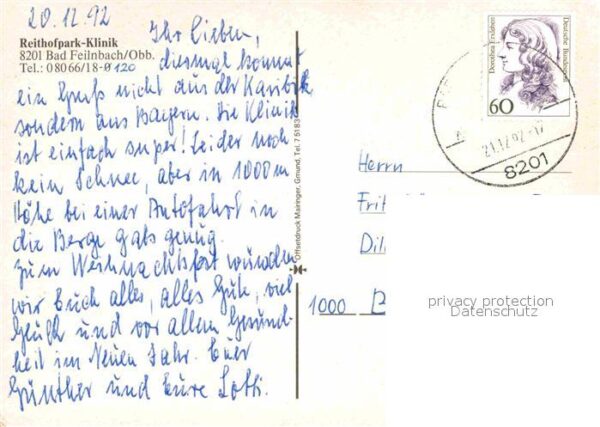 20.12.92
Reithofpark-Klinik
8201 Bad Feilnbach/Obb.
Tel.: 08066/18-0120
Ihr lieben,
diesmal kommt
ein Gruß nicht aus der Karibik
sondern aus Bayern. Die Klinik
ist einfach super! Leider noch
kein Schnee, aber in 1000 m
Höhe bei einer Autofahrt in
die Berge gabs genug.
Zum Weihnachtsfest wünschen
wir Euch alles, alles Gute, viel
Glück und vor allem Gesund-
heit im Neuen Jahr. Euer
Günther und Eure Lotti.
Offsetdruck Mairinger, Gmund, Tel. 7 5183
Dorothea Erxleben
Deutsche Bundespost
60
21.12.92-17
8201
Herrn
Frit
Dil
1000
privacy protection
Datenschutz